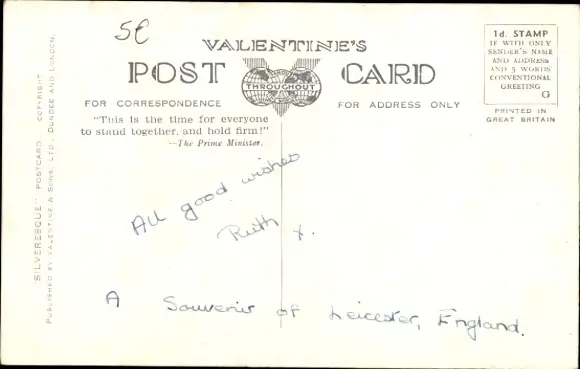 5€
VALENTINE'S
POST CARD
THROUGHOUT
FOR CORRESPONDENCE
"This is the time for everyone
to stand together, and hold firm!"
—The Prime Minister.
FOR ADDRESS ONLY
1d. STAMP
IF WITH ONLY
SENDER'S NAME
AND ADDRESS
AND 5 WORDS
CONVENTIONAL
GREETING
G
PRINTED IN
GREAT BRITAIN
"SILVERESQUE" POSTCARD. COPYRIGHT.
PUBLISHED BY VALENTINE & SONS, LTD., DUNDEE AND LONDON.
All good wishes
Ruth x.
A Souvenir of Leicester, England.